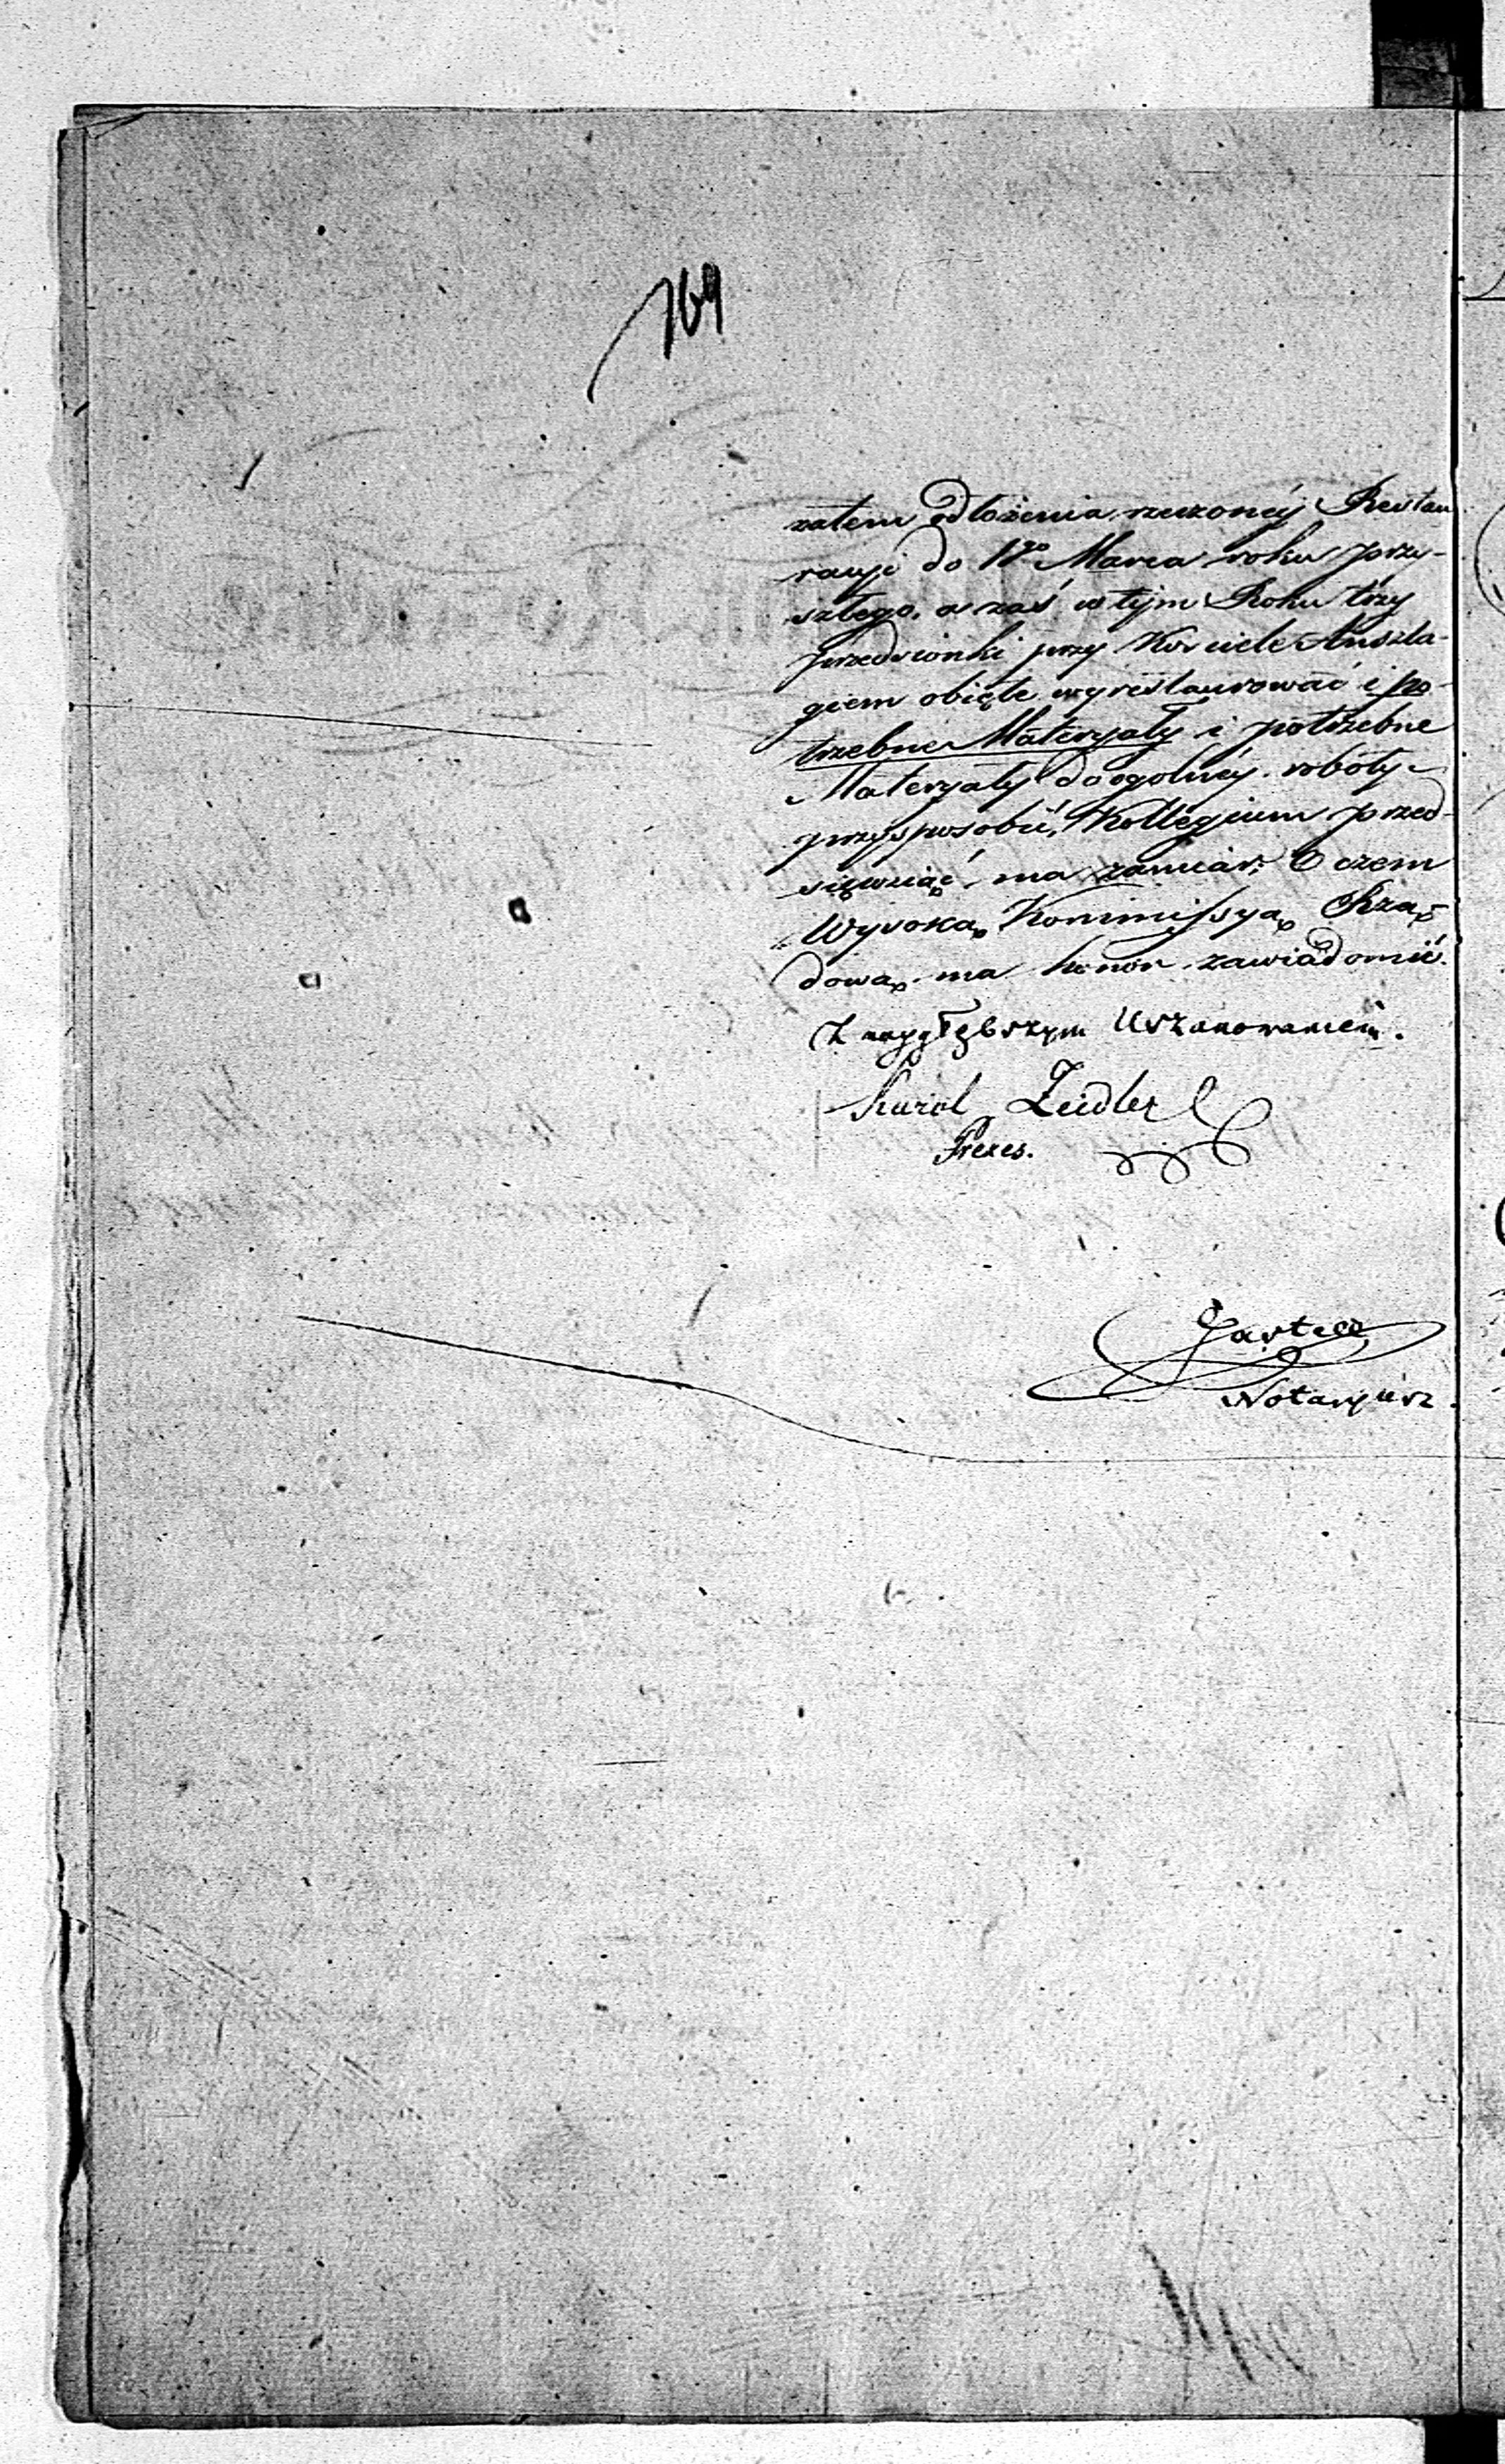 169
zatem odłożenia rzeczonéj Restau
racyi do 1go Marca roku przy-
szłego, a zaś w tym Roku trzy
przedsionki przy Kościele Anszla-
giem obięte wyrestaurować i po-
trzebne Materyały i potrzebne
Materyały do ogolnéj roboty
przysposobić, Kollegium przed-
sięwziąć ma zamiar; O czem
Wysoką Kommissyą Rzą-
dową ma honor zawiadomić.
Z naygłębszym Uszanowaniem.
Karol Zeidler
Prezes.
Notaryusz